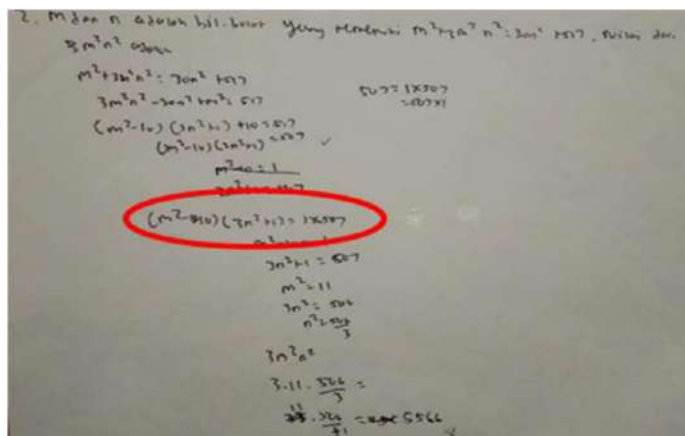 2. m dan n adalah bil. bulat yang memenuhi m²+3m²n²=30n²+517. Nilai dari
3m²n² adalah
m²+3m²n²=30n²+517
3m²n²-30n²+m²=517
507=1×507
=507×1
(m²-10)(3n²+1)+10=517
(m²-10)(3n²+1)=507
m²-10=1
(m²-10)(3n²+1)=1×507
3n²+1=507
m²=11
3n²=506
n²=506/3
3m²n²
3.11.506/3=
=5566